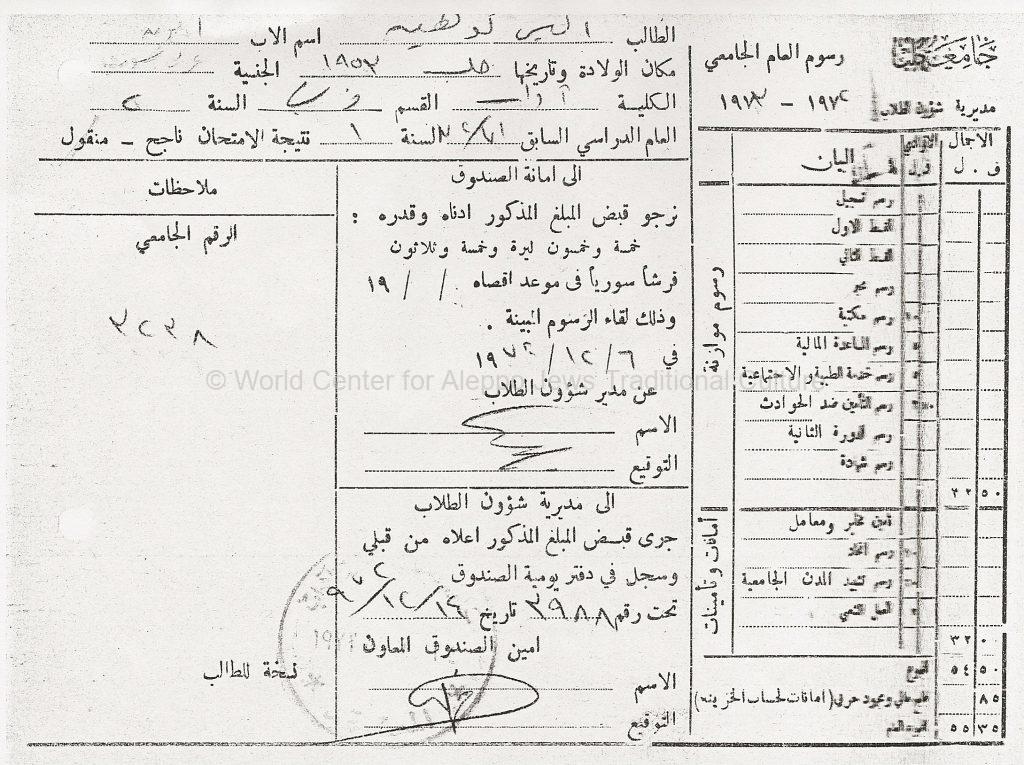 جامعة حلب
رسوم العام الجامعي
١٩٧٢ - ١٩٧٣
مديرية شؤون الطلاب
الطالب
اسم الاب
مكان الولادة وتاريخها حلب ١٩٥٣ الجنسية
الكلية آداب القسم السنة ٢
العام الدراسي السابق ٧١/٧٢ السنة ١ نتيجة الامتحان ناجح - منقول
الى امانة الصندوق
نرجو قبض المبلغ المذكور ادناه وقدره :
خمسة وخمسون ليرة وخمسة وثلاثون
قرشاً سورياً في موعد اقصاه / / ١٩
وذلك لقاء الرسوم المبينة .
في ٦ / ١٢ / ١٩٧٢
عن مدير شؤون الطلاب
الاسم
التوقيع
الى مديرية شؤون الطلاب
جرى قبض المبلغ المذكور اعلاه من قبلي
وسجل في دفتر يومية الصندوق
تحت رقم ٣٩٨٨ تاريخ ١٤/١٢/٩٧٢
امين الصندوق المعاون
الاسم
التوقيع
ملاحظات
الرقم الجامعي
٣٢٣٨
نسخة للطالب
الاجمال
ق . ل
البيان
رسوم موازنة
رسم تسجيل
القسط الاول
القسط الثاني
رسم مكتبة
رسم المساعدة المالية
رسم خدمة الطبية والاجتماعية
رسم التأمين ضد الحوادث
رسم الدورة الثانية
رسم شهادة
٢٢ ٥٠
أمانات وتأمينات
تأمين مخبر ومعامل
رسم اتحاد
رسم تشييد المدن الجامعية
٣٢ ٠
٥٤ ٥٠
طابع مالي ومجهود حربي (امانات لحساب الخزينة)
٨٥
٥٥ ٣٥
© World Center for Aleppo Jews Traditional Culture